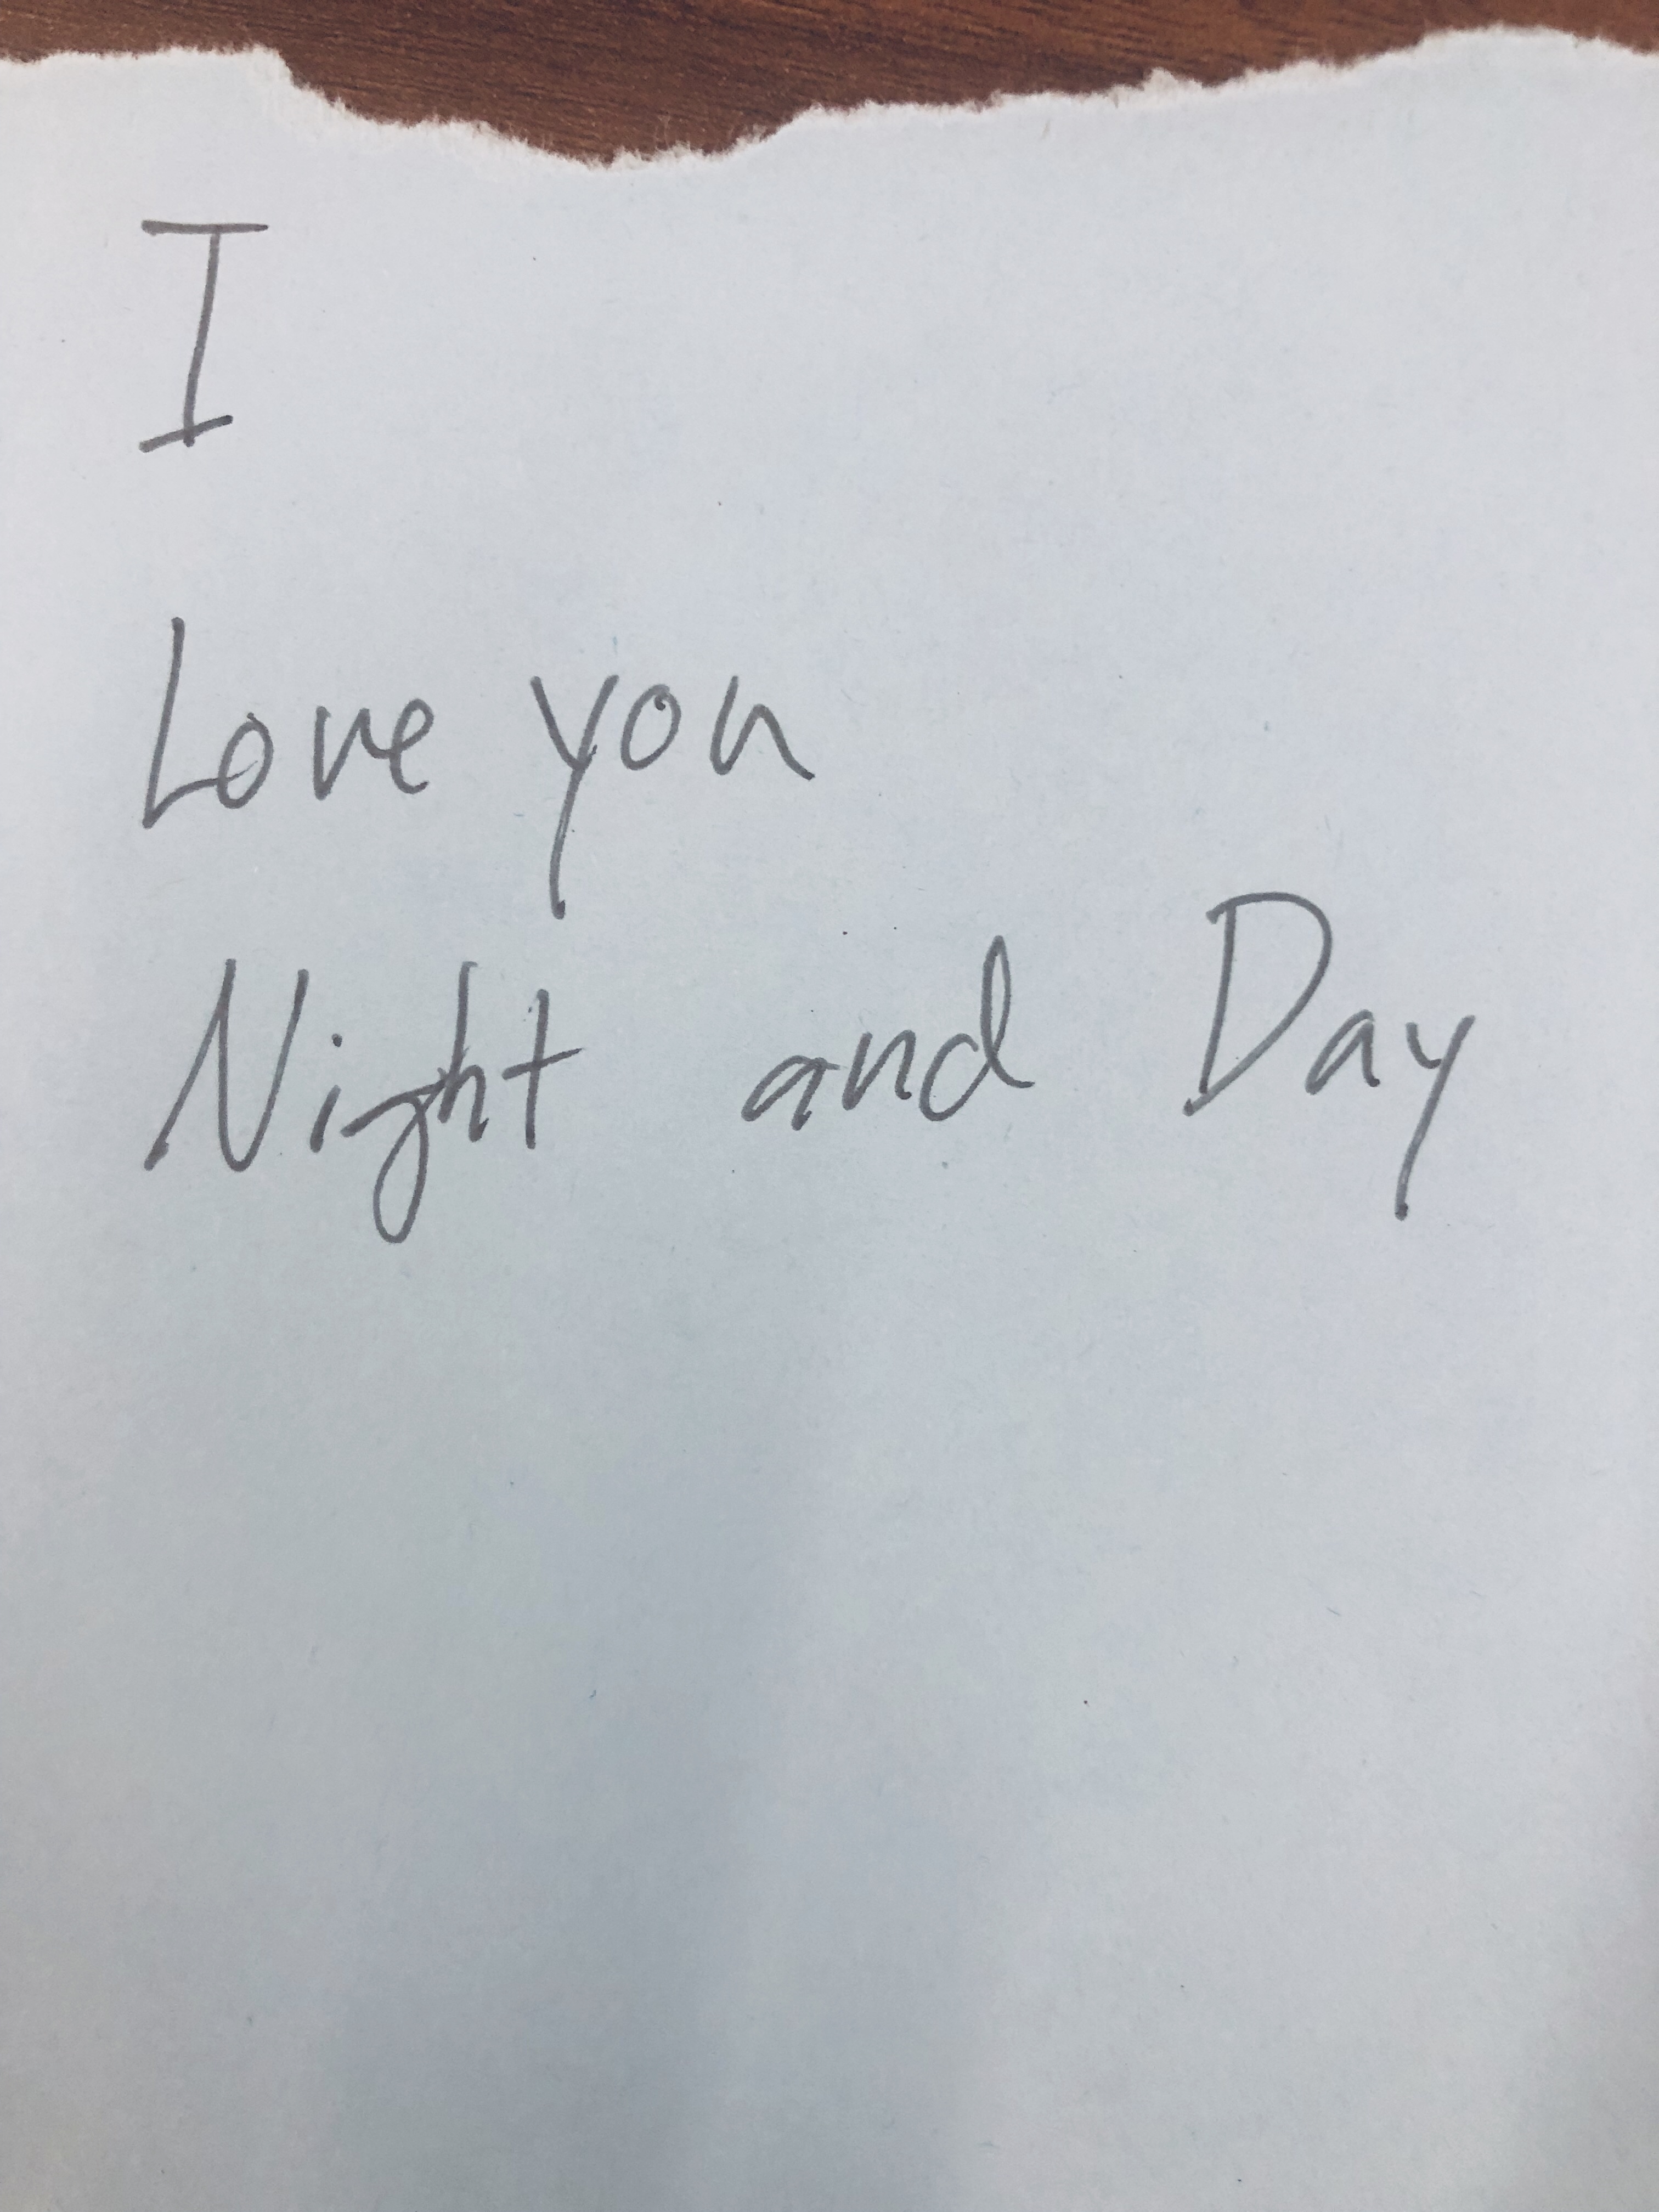 I
Love you
Night and Day